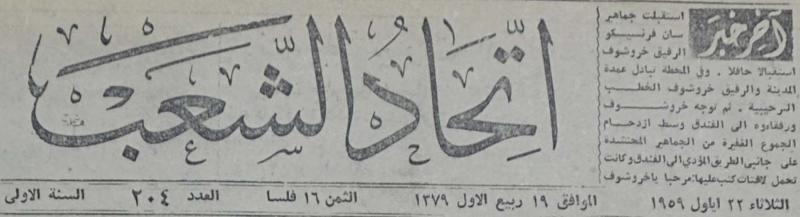 آخر خبر
استقبلت جماهير
سان فرنسيسكو
الرفيق خروشوف
استقبالا حافلا . وفي المحطة تبادل عمدة
المدينة والرفيق خروشوف الخطب
الترحيبية . ثم توجه خروشوف
ورفقاءه الى الفندق وسط ازدحام
الجموع الغفيرة من الجماهير المحتشدة
على جانبي الطريق المؤدي الى الفندق وكانت
تحمل لافتات كتب عليها: مرحبا ياخروشوف
اتحاد الشعب
الثلاثاء ٢٢ ايلول ١٩٥٩ الموافق ١٩ ربيع الاول ١٣٧٩ الثمن ١٦ فلسا العدد ٢٠٤ السنة الاولى